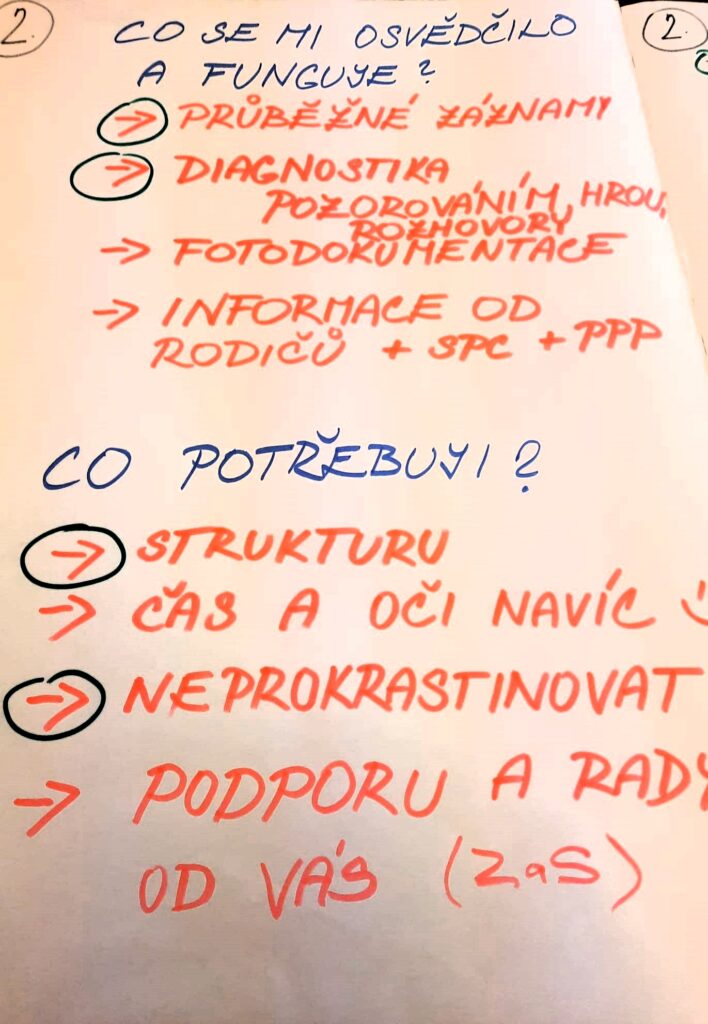 2.
CO SE MI OSVĚDČILO
A FUNGUJE?
→ PRŮBĚŽNÉ ZÁZNAMY
→ DIAGNOSTIKA
POZOROVÁNÍM, HROU,
ROZHOVORY
→ FOTODOKUMENTACE
→ INFORMACE OD
RODIČŮ + SPC + PPP
CO POTŘEBUJI?
→ STRUKTURU
→ ČAS A OČI NAVÍC
→ NEPROKRASTINOVAT
→ PODPORU A RADY
OD VÁS (ZaS)
2.